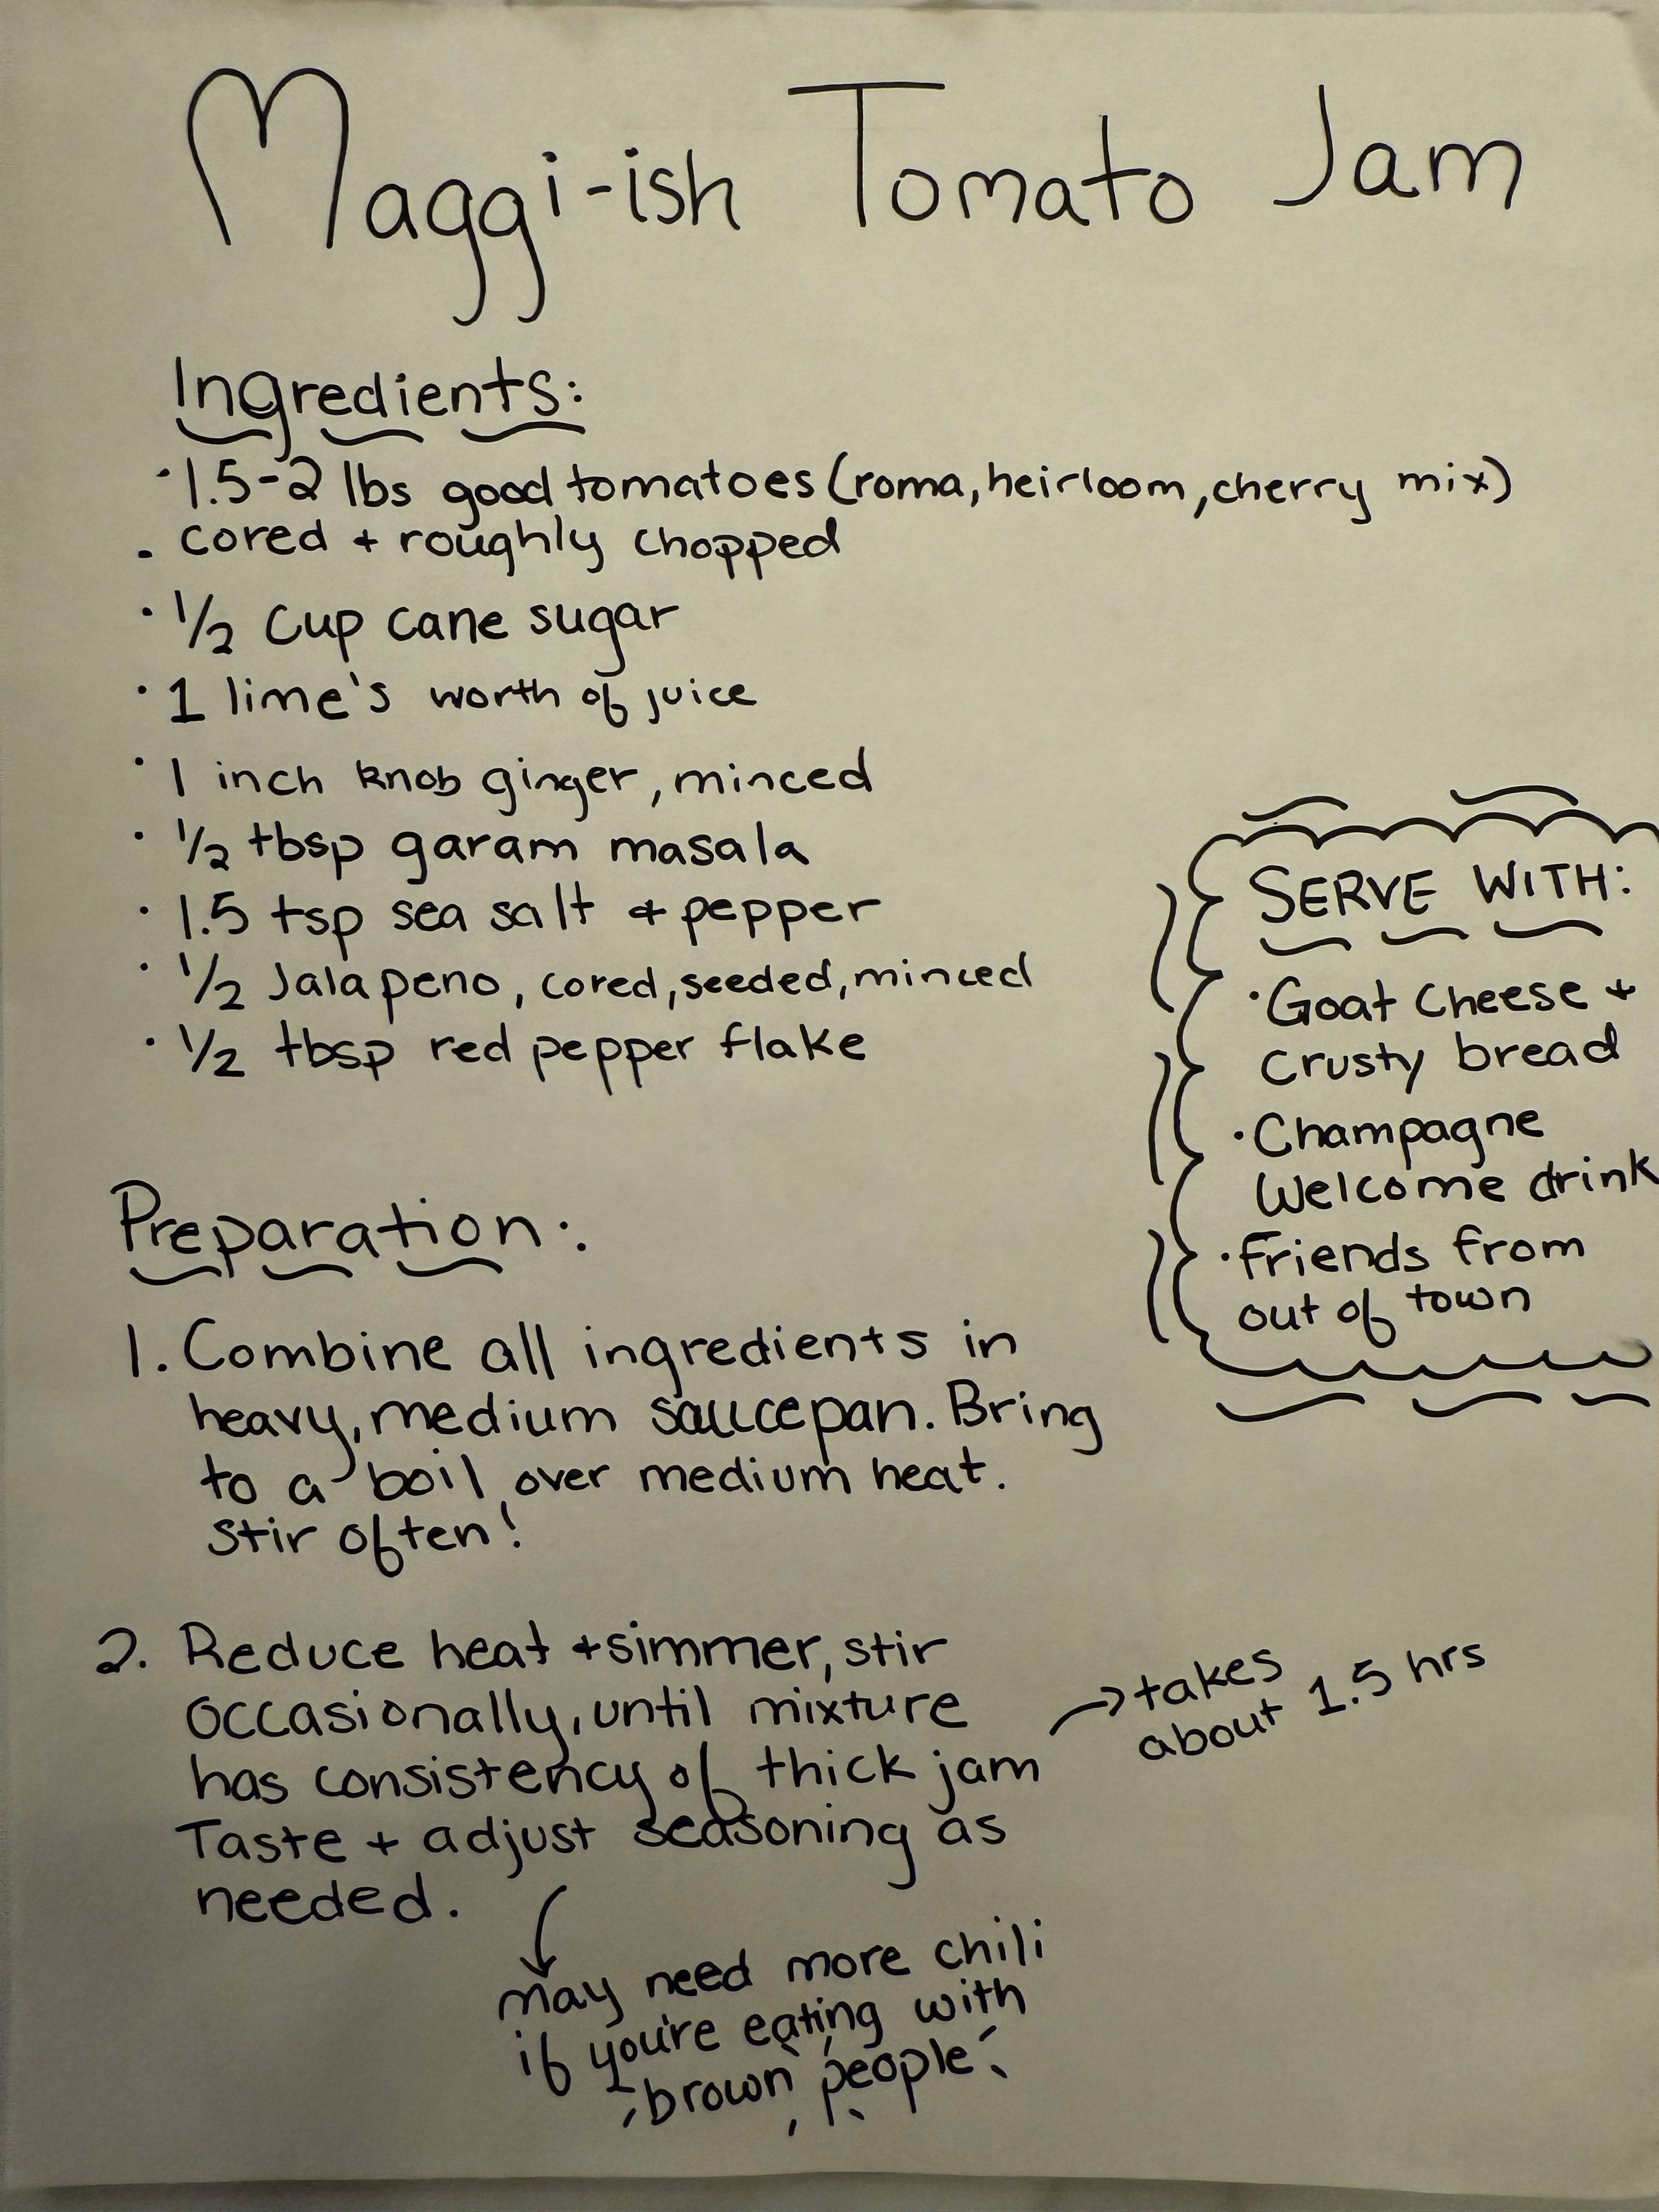 Maggi-ish Tomato Jam
Ingredients:
·1.5-2 lbs good tomatoes (roma, heirloom, cherry mix)
. cored + roughly chopped
· 1/2 Cup cane sugar
· 1 lime's worth of juice
· 1 inch knob ginger, minced
· 1/2 tbsp garam masala
· 1.5 tsp sea salt + pepper
· 1/2 Jalapeno, cored, seeded, minced
· 1/2 tbsp red pepper flake
SERVE WITH:
·Goat Cheese +
Crusty bread
·Champagne
Welcome drink
·Friends from
out of town
Preparation:
1. Combine all ingredients in
heavy, medium saucepan. Bring
to a boil over medium heat.
Stir often!
2. Reduce heat + simmer, stir
occasionally, until mixture
has consistency of thick jam
Taste + adjust seasoning as
needed.
→ takes
about 1.5 hrs
may need more chili
if you're eating with
brown people